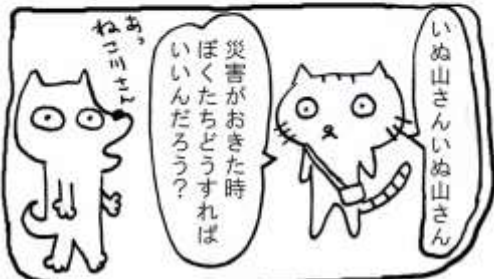 いぬ山さんいぬ山さん
災害がおきた時
ぼくたちどうすれば
いいんだろう？
あっ
ねこ川さん